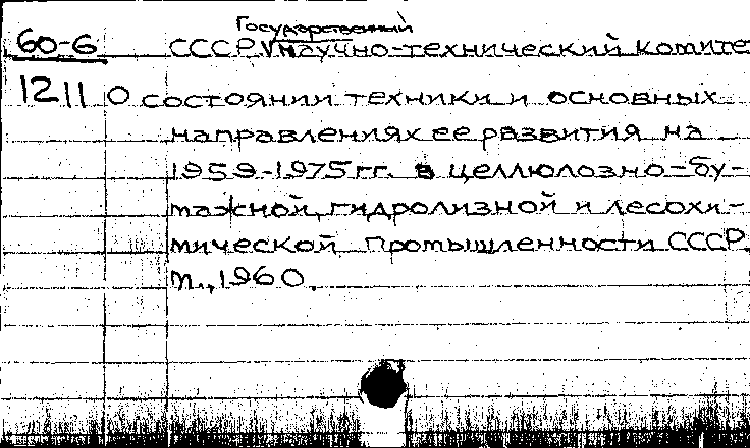 Государственный
60-6 СССР. научно-технический комите
1211 О состоянии техники и основных
направлениях ее развития на
1959-1975 гг. в целлюлозно-бу-
мажной, гидролизной и лесохи-
мической промышленности СССР.
М., 1960.